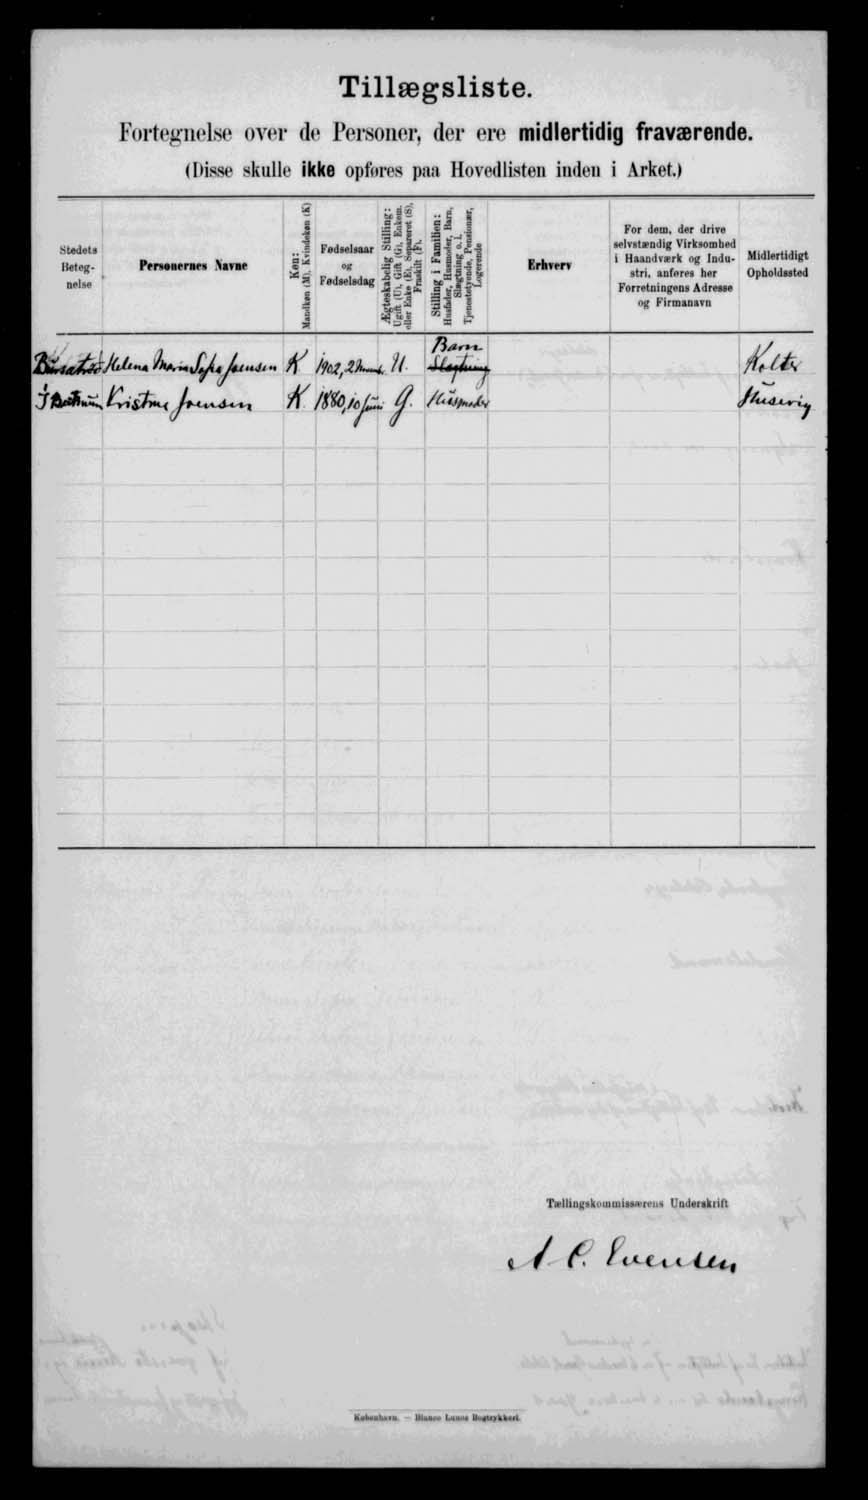 Tillægsliste.
Fortegnelse over de Personer, der ere midlertidig fraværende.
(Disse skulle ikke opføres paa Hovedlisten inden i Arket.)
Stedets
Beteg-
nelse
Personernes Navne
Køn:
Mandkøn (M), Kvindekøn (K)
Fødselsaar
og
Fødselsdag
Ægteskabelig Stilling:
Ugift (U), Gift (G), Enkem.
eller Enke (E), Separeret (S),
Fraskilt (F).
Stilling i Familien:
Husfader, Husmoder, Barn,
Slægtning o. l.
Tjenestetyende, Pensionær,
Logerende
Erhverv
For dem, der drive
selvstændig Virksomhed
i Haandværk og Indu-
stri, anføres her
Forretningens Adresse
og Firmanavn
Midlertidigt
Opholdssted
Helena Maria Sofia Joensen K 1902, 2 U. Barn Slægtning Kolter
Kristina Joensen K. 1880, 10 Juni G. Husmoder Husevig
Tællingskommissærens Underskrift
A. C. Evensen
København. — Bianco Lunos Bogtrykkeri.